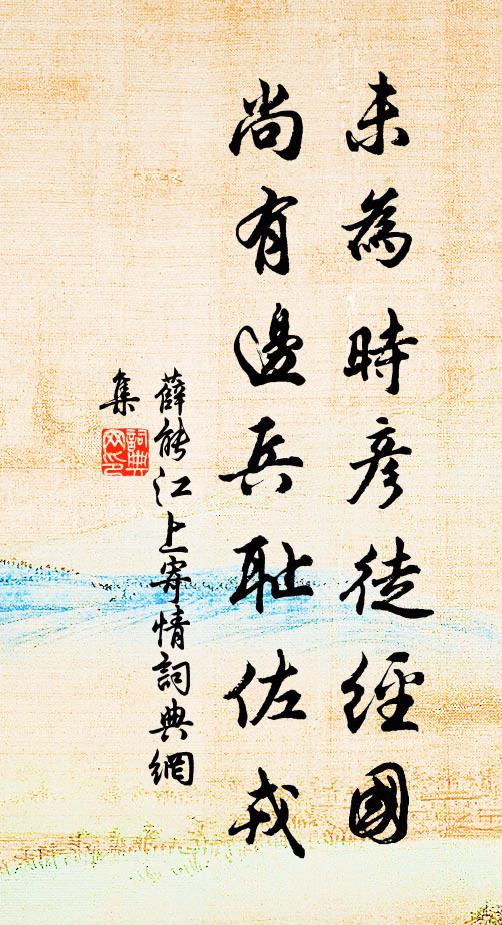 未為時彥徒經國
尚有邊兵恥佐戎
薛能江上寄情詞典網
集
詞典網印